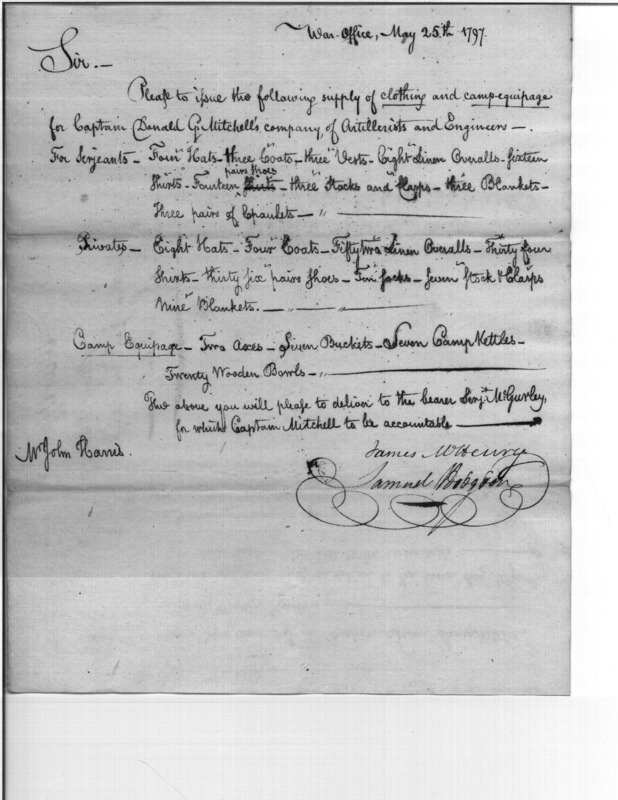 War-Office, May 25.th 1797.
Sir.—
Please to issue the following supply of clothing and camp-equipage
for Captain Donald G. Mitchell's company of Artillerists and Engineers —.
For Serjeants — Four Hats - three Coats - three Vests - Eight Linen Overalls - sixteen
pairs shoes
Shirts - Fourteen - three Stocks and Clasps - three Blankets -
Three pairs of Epaulets — " —
Privates — Eight Hats - Four Coats - Fifty two Linen Overalls - Thirty four
Shirts - thirty six pairs Shoes - Ten Socks - Seven Stock & Clasps
Nine Blankets. — " —
Camp Equipage - Two Axes - Seven Buckets - Seven Camp Kettles -
Twenty Wooden Bowls - " —
The above you will please to deliver to the bearer Serj.t McGurley,
for which Captain Mitchell to be accountable —
Mr John Harris.
James McHenry
Samuel Hodgdon